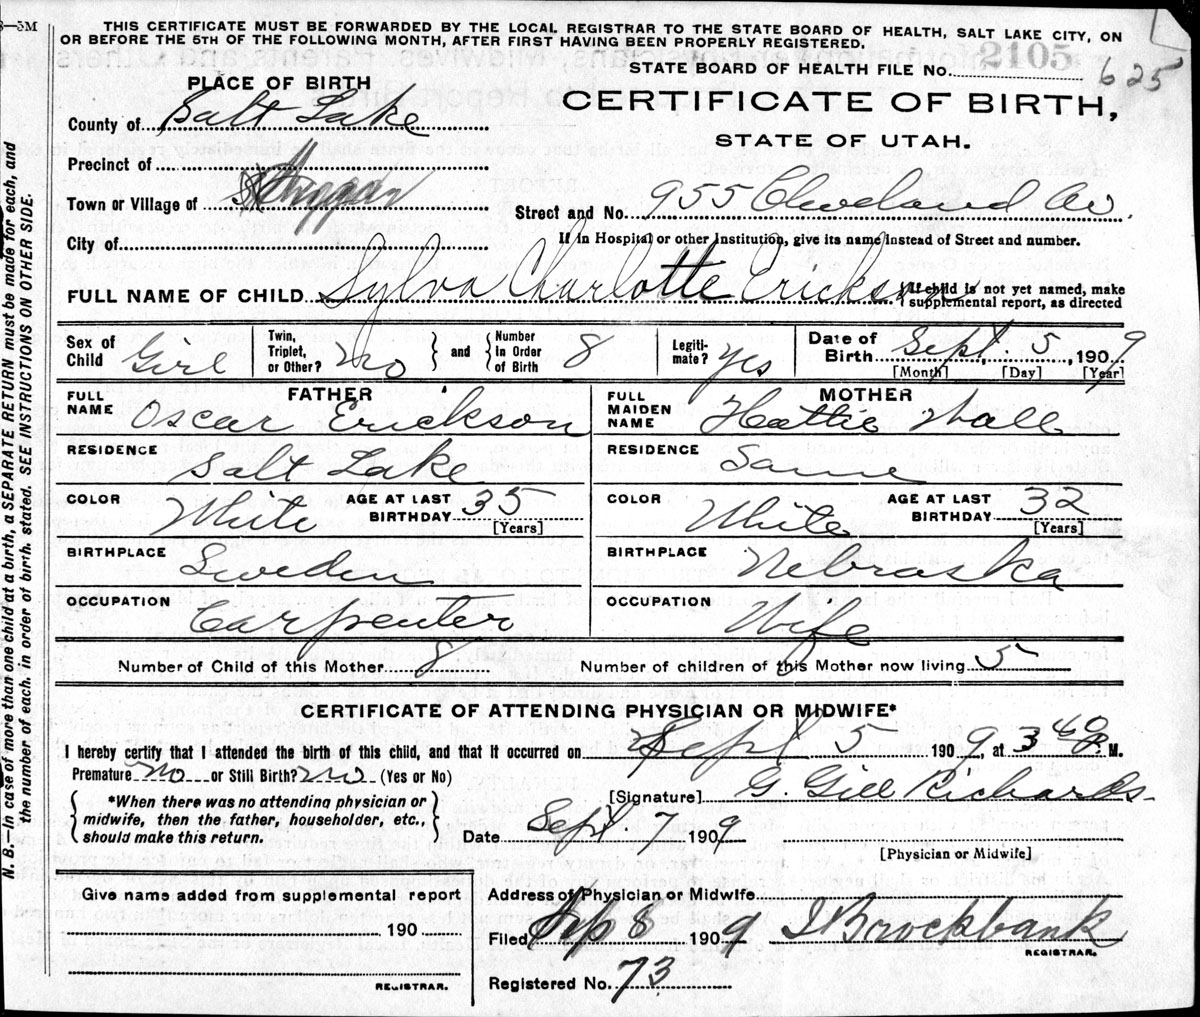 8—5M
THIS CERTIFICATE MUST BE FORWARDED BY THE LOCAL REGISTRAR TO THE STATE BOARD OF HEALTH, SALT LAKE CITY, ON
OR BEFORE THE 5TH OF THE FOLLOWING MONTH, AFTER FIRST HAVING BEEN PROPERLY REGISTERED.
STATE BOARD OF HEALTH FILE No. 2105 625
PLACE OF BIRTH
CERTIFICATE OF BIRTH,
STATE OF UTAH.
County of Salt Lake
Precinct of
Town or Village of
Street and No. 955 Cleveland Av.
City of
If in Hospital or other Institution, give its name instead of Street and number.
FULL NAME OF CHILD Sylva Charlotte Erickson
If child is not yet named, make
supplemental report, as directed
Sex of Child Girl
Twin, Triplet, or Other? No
and
Number In Order of Birth 8
Legiti-mate? Yes
Date of Birth Sept. 5, 1909
[Month] [Day] [Year]
FATHER
FULL NAME Oscar Erickson
RESIDENCE Salt Lake
COLOR White
AGE AT LAST BIRTHDAY 35 [Years]
BIRTHPLACE Sweden
OCCUPATION Carpenter
MOTHER
FULL MAIDEN NAME Hattie Wall
RESIDENCE Same
COLOR White
AGE AT LAST BIRTHDAY 32 [Years]
BIRTHPLACE Nebraska
OCCUPATION Wife
Number of Child of this Mother 8 Number of children of this Mother now living 5
CERTIFICATE OF ATTENDING PHYSICIAN OR MIDWIFE*
I hereby certify that I attended the birth of this child, and that it occurred on Sept 5 1909, at 3 40 P. M.
Premature No or Still Birth? No (Yes or No)
*When there was no attending physician or
midwife, then the father, householder, etc.,
should make this return.
[Signature] G. Gill Richards
Date Sept 7 1909
[Physician or Midwife]
Give name added from supplemental report
190
REGISTRAR.
Address of Physician or Midwife
Filed Sep 8 1909 Brockbank
REGISTRAR.
Registered No. 73
N. B.—In case of more than one child at a birth, a SEPARATE RETURN must be made for each, and
the number of each, in order of birth, stated. SEE INSTRUCTIONS ON OTHER SIDE.